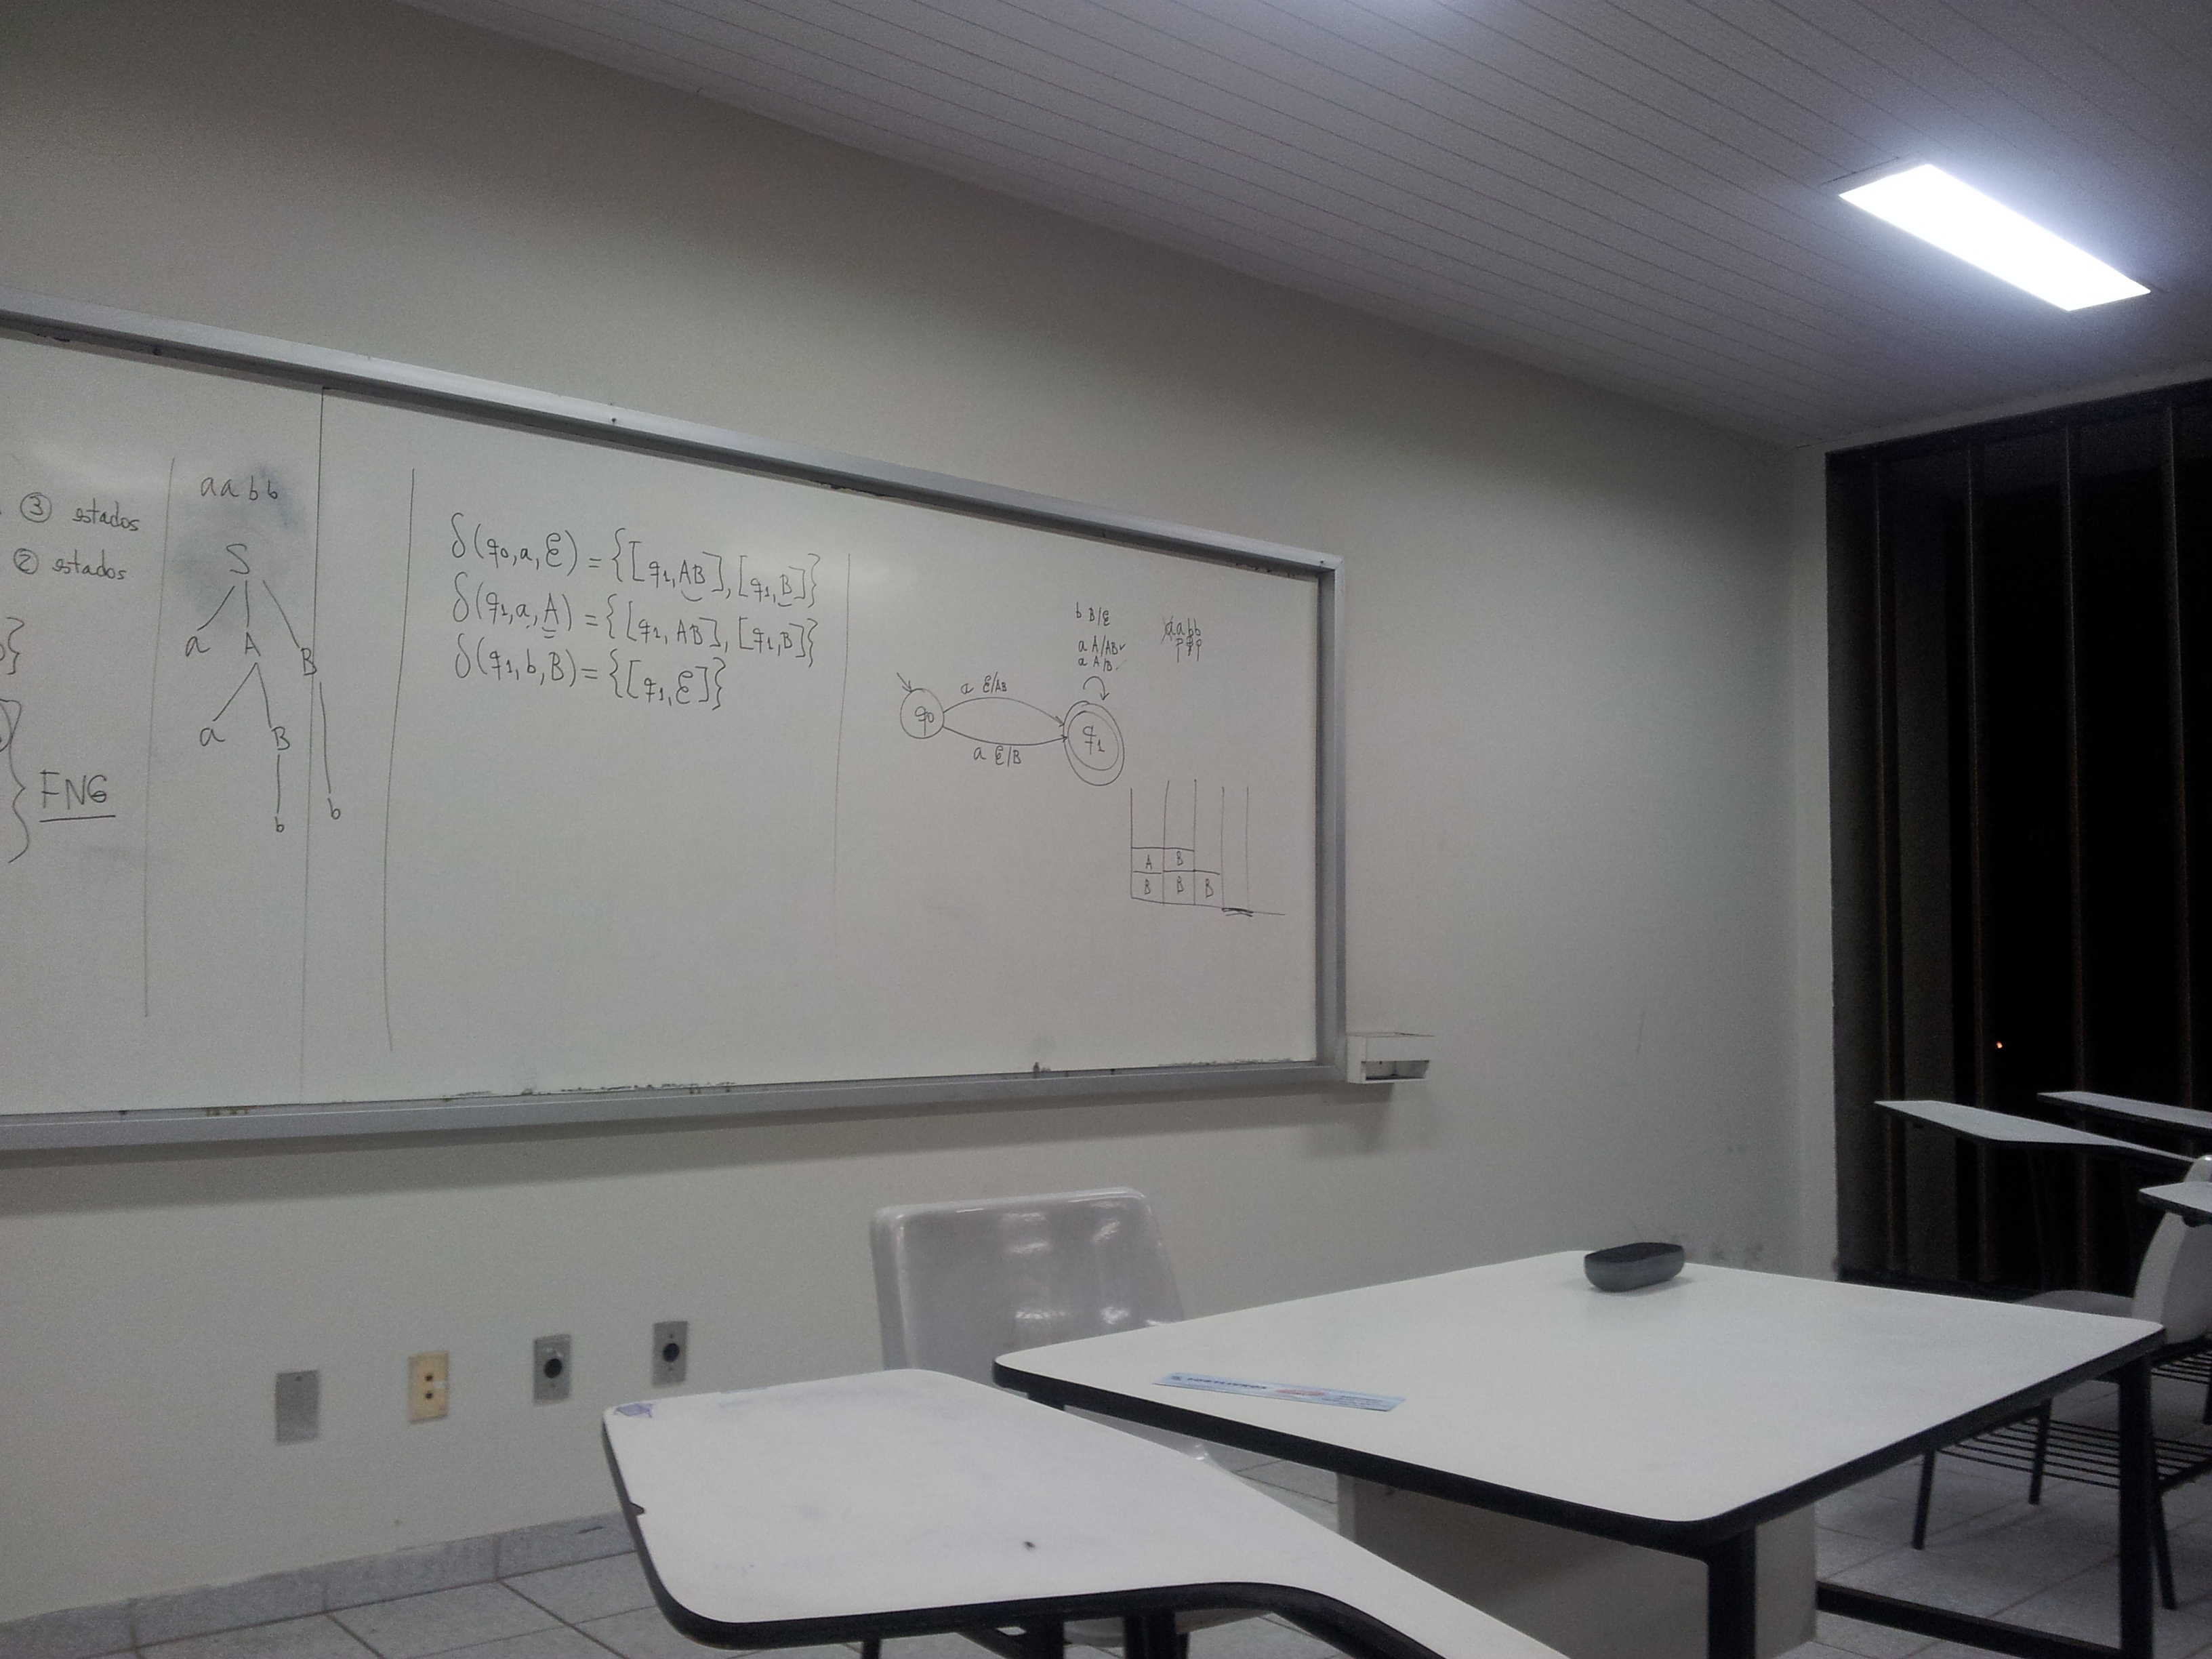 ③ estados
② estados
}
}
FNG
aabb
S
a A B
a B
b b
δ(q0,a,ε) = {[q1,AB],[q1,B]}
δ(q1,a,A) = {[q1,AB],[q1,B]}
δ(q1,b,B) = {[q1,ε]}
b B/ε
a A/AB✓
a A/B✓
aabb
a ε/AB
q0
q1
a ε/B
A B
B B B